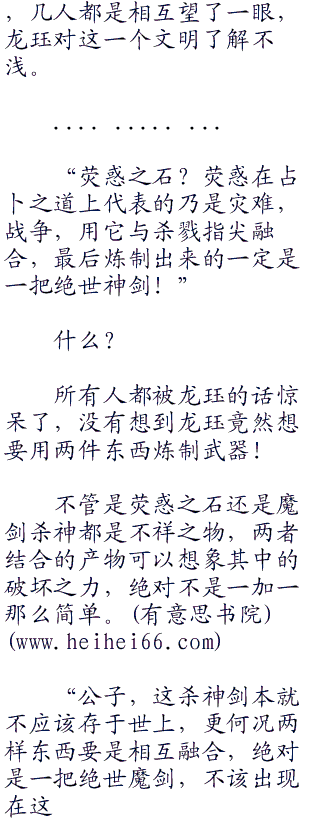 ，几人都是相互望了一眼，
龙珏对这一个文明了解不
浅。
.... ..... ...
“荧惑之石？荧惑在占
卜之道上代表的乃是灾难，
战争，用它与杀戮指尖融
合，最后炼制出来的一定是
一把绝世神剑！”
什么？
所有人都被龙珏的话惊
呆了，没有想到龙珏竟然想
要用两件东西炼制武器！
不管是荧惑之石还是魔
剑杀神都是不祥之物，两者
结合的产物可以想象其中的
破坏之力，绝对不是一加一
那么简单。(有意思书院)
(www.heihei66.com)
“公子，这杀神剑本就
不应该存于世上，更何况两
样东西要是相互融合，绝对
是一把绝世魔剑，不该出现
在这